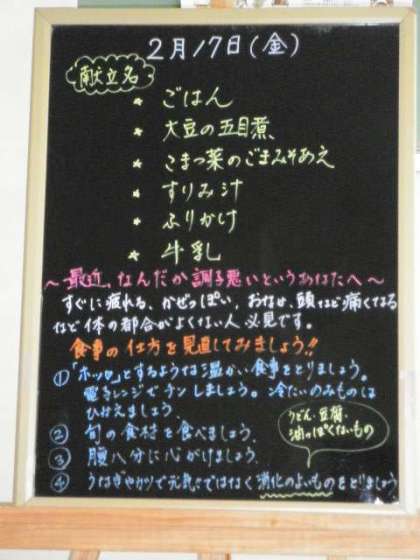 2月17日(金)
献立名
* ごはん
* 大豆の五目煮
* こまつ菜のごまみそあえ
* すりみ汁
* ふりかけ
* 牛乳
～最近、なんだか調子悪いというあなたへ～
すぐに疲れる、かぜっぽい、おなか、頭など痛くてなる
など体の都合がよくない人必見です。
食事の仕方を見直してみましょう!!
① 「ホッ」とするような温かい食事をとりましょう。
電子レンジでチンしましょう。冷たいのみものは
ひかえましょう。
② 旬の食材を食べましょう。
③ 腹八分に心がけましょう。
④ うなぎやカツで元気さではなく消化のよいものをとりましょう
うどん、豆腐、
油っぽくないもの